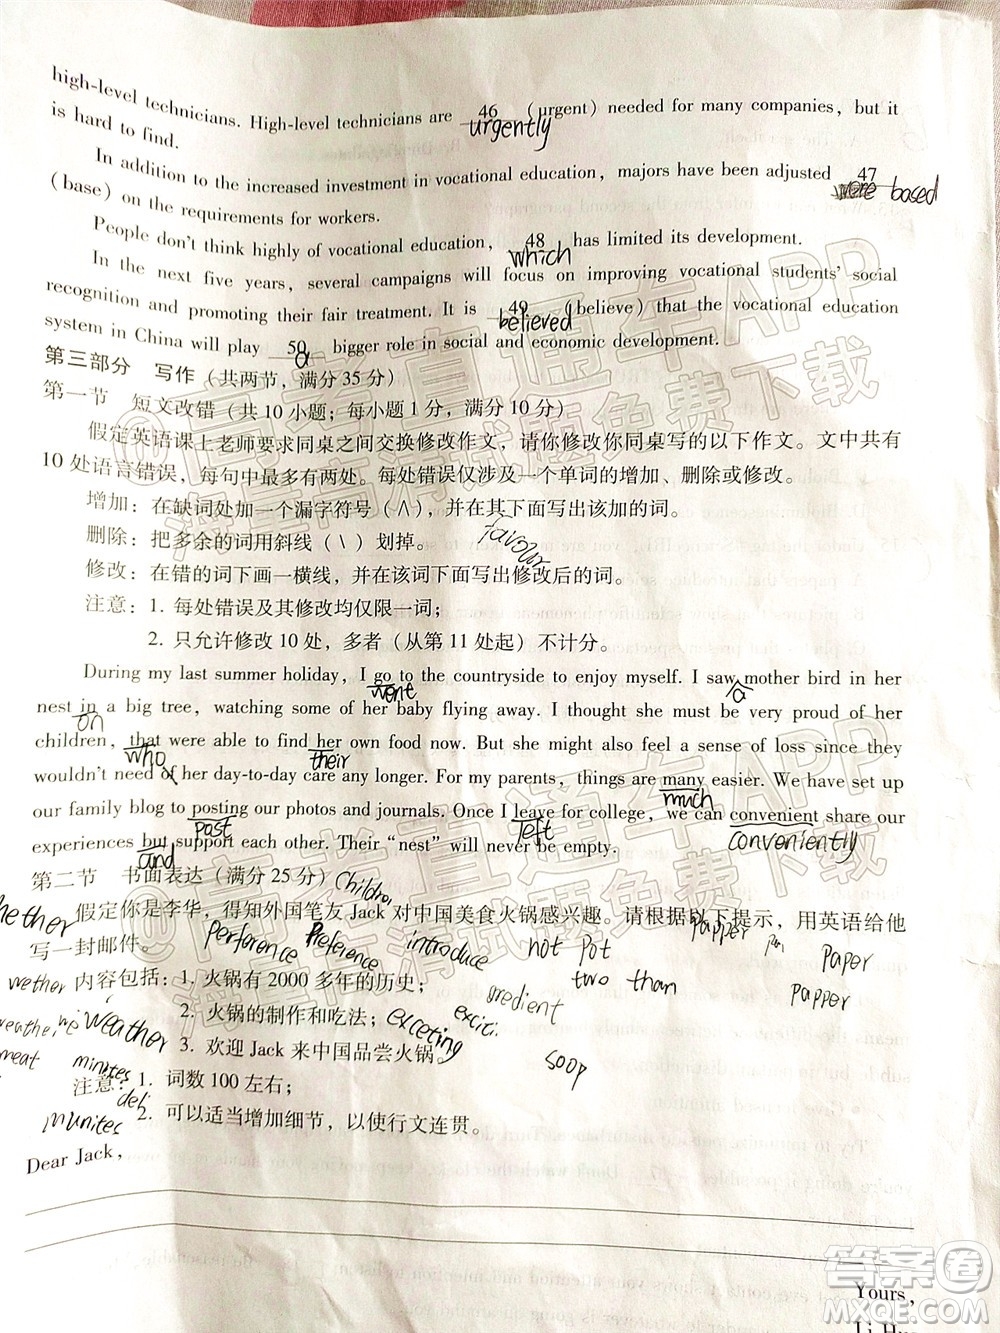 high-level technicians. High-level technicians are 46 (urgent) needed for many companies, but it
urgently
is hard to find.
In addition to the increased investment in vocational education, majors have been adjusted 47
were based
(base) on the requirements for workers.
People don't think highly of vocational education, 48 has limited its development.
which
In the next five years, several campaigns will focus on improving vocational students' social
recognition and promoting their fair treatment. It is 49 (believe) that the vocational education
believed
system in China will play 50 bigger role in social and economic development.
a
第三部分 写作（共两节，满分35分）
第一节 短文改错（共10小题；每小题1分，满分10分）
假定英语课上老师要求同桌之间交换修改作文，请你修改你同桌写的以下作文。文中共有
10处语言错误，每句中最多有两处。每处错误仅涉及一个单词的增加、删除或修改。
增加：在缺词处加一个漏字符号（∧），并在其下面写出该加的词。
favour
删除：把多余的词用斜线（\）划掉。
修改：在错的词下画一横线，并在该词下面写出修改后的词。
注意：1. 每处错误及其修改均仅限一词；
2. 只允许修改10处，多者（从第11处起）不计分。
During my last summer holiday, I go to the countryside to enjoy myself. I saw mother bird in her
went a
nest in a big tree, watching some of her baby flying away. I thought she must be very proud of her
on
children, that were able to find her own food now. But she might also feel a sense of loss since they
who their
wouldn't need of her day-to-day care any longer. For my parents, things are many easier. We have set up
much
our family blog to posting our photos and journals. Once I leave for college, we can convenient share our
past left conveniently
experiences but support each other. Their "nest" will never be empty.
and
第二节 书面表达（满分25分）
假定你是李华，得知外国笔友Jack对中国美食火锅感兴趣。请根据以下提示，用英语给他
写一封邮件。
perference Preference introduce hot pot papper Paper
内容包括：1. 火锅有2000多年的历史；
wether two than papper
2. 火锅的制作和吃法；
weather excting
3. 欢迎Jack来中国品尝火锅。
meat minites soop
注意：1. 词数100左右；
2. 可以适当增加细节，以使行文连贯。
munites
Dear Jack,
Yours,
@高考直通车APP
海量高清试题免费下载
@高考直通车APP
海量高清试题免费下载
答案圈
MXQE.COM